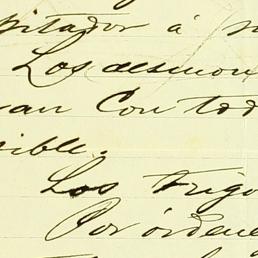 pitador á
Los desmon
an Con tod
sible.
Los trigo
Por órdene